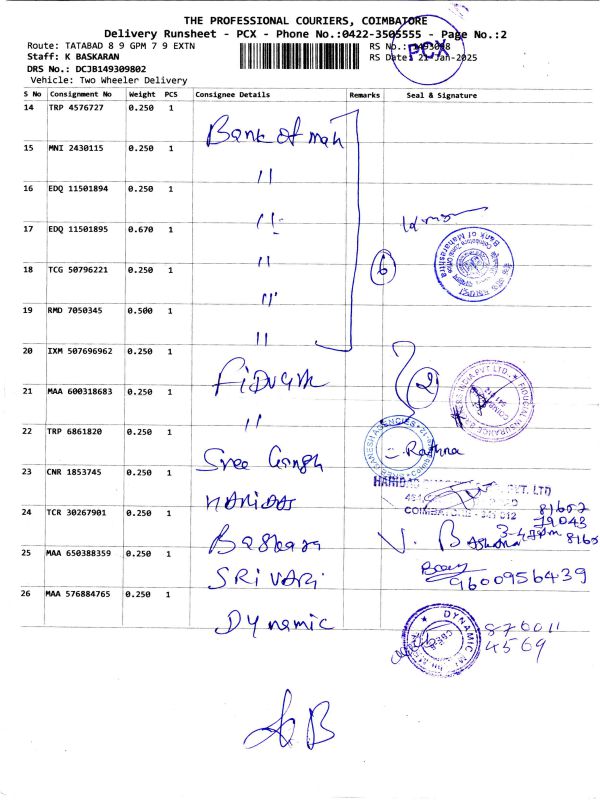 THE PROFESSIONAL COURIERS, COIMBATORE
Delivery Runsheet - PCX - Phone No.:0422-3505555 - Page No.:2
Route: TATABAD 8 9 GPM 7 9 EXTN
RS No.: 1493098
Staff: K BASKARAN
RS Date: 21-Jan-2025
PCX
DRS No.: DCJB149309802
Vehicle: Two Wheeler Delivery
S No Consignment No Weight PCS Consignee Details Remarks Seal & Signature
14 TRP 4576727 0.250 1 Bank of mah
15 MNI 2430115 0.250 1 "
16 EDQ 11501894 0.250 1 "
17 EDQ 11501895 0.670 1 "
Bank of Maharashtra
18 TCG 50796221 0.250 1 " 6
19 RMD 7050345 0.500 1 "
20 IXM 507696962 0.250 1
21 MAA 600318683 0.250 1 " 2
22 TRP 6861820 0.250 1 Sree
Rathna
23 CNR 1853745 0.250 1 HARIDAS
PVT. LTD
24 TCR 30267901 0.250 1 Baskara
81652
79043
V. B
25 MAA 650388359 0.250 1 SRI VARI
9600956439
26 MAA 576884765 0.250 1 Dynamic
DYNAMIC
870011
4569